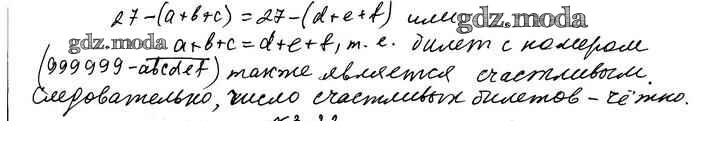 27-(a+b+c)=27-(d+e+f) или gdz.moda
gdz.moda a+b+c=d+e+f, т. е. билет с номером
(999999-abcdef) также является счастливым.
Следовательно, число счастливых билетов - чётно.